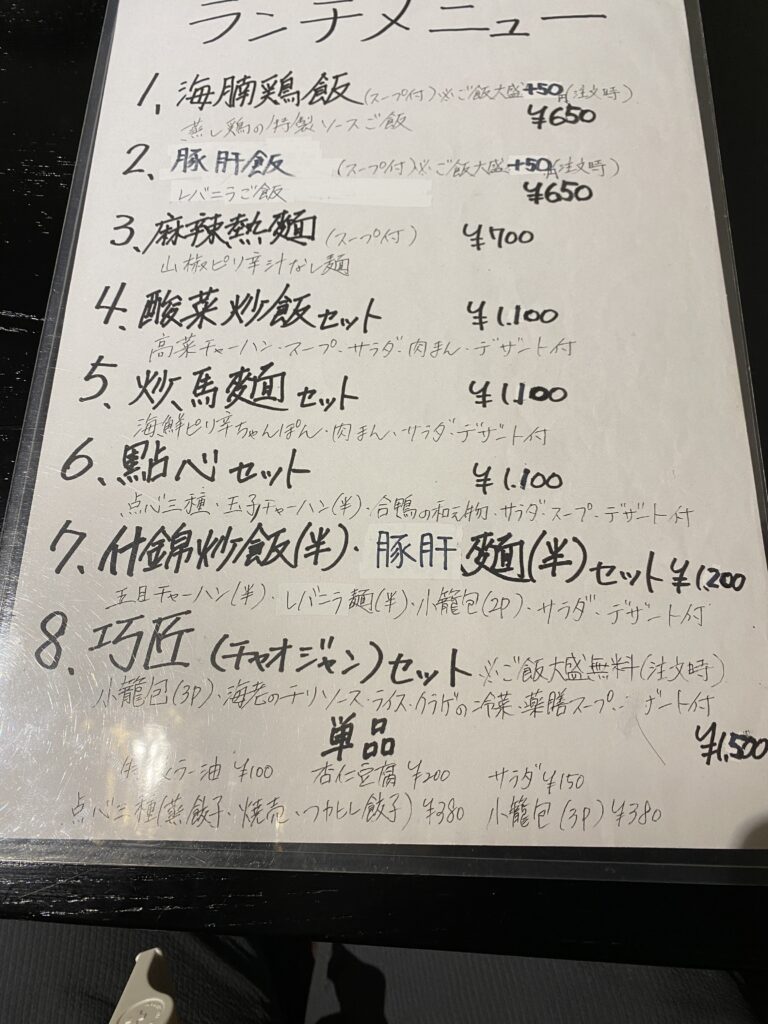 ランチメニュー
1、海腩鶏飯(スープ付)※ご飯大盛+50円(注文時)
蒸し鶏の特製ソースご飯 ¥650
2、豚肝飯 (スープ付)※ご飯大盛+50円(注文時)
レバニラご飯 ¥650
3、麻辣熱麺(スープ付) ¥700
山椒ピリ辛汁なし麺
4、酸菜炒飯セット ¥1.100
高菜チャーハン・スープ・サラダ・肉まん・デザート付
5、炒馬麺セット ¥1.100
海鮮ピリ辛ちゃんぽん・肉まん・サラダ・デザート付
6、點心セット ¥1.100
点心三種・玉子チャーハン(半)・合鴨の和え物・サラダ・スープ・デザート付
7、什錦炒飯(半)・豚肝麺(半)セット ¥1.200
五目チャーハン(半)・レバニラ麺(半)・小籠包(2P)・サラダ・デザート付
8、巧匠(チャオジャン)セット ※ご飯大盛無料(注文時)
小籠包(3P)・海老のチリソース・ライス・クラゲの冷菜・薬膳スープ・ザート付
¥1,500
単品
ラー油 ¥100 杏仁豆腐 ¥200 サラダ ¥150
点心三種(蒸餃子・焼売・つカヒレ餃子)¥380 小籠包(3P)¥380